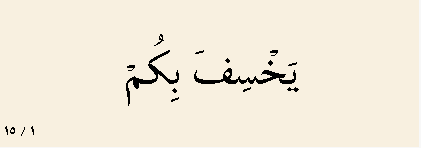 يَخْسِفَ بِكُمْ
١ / ١٥